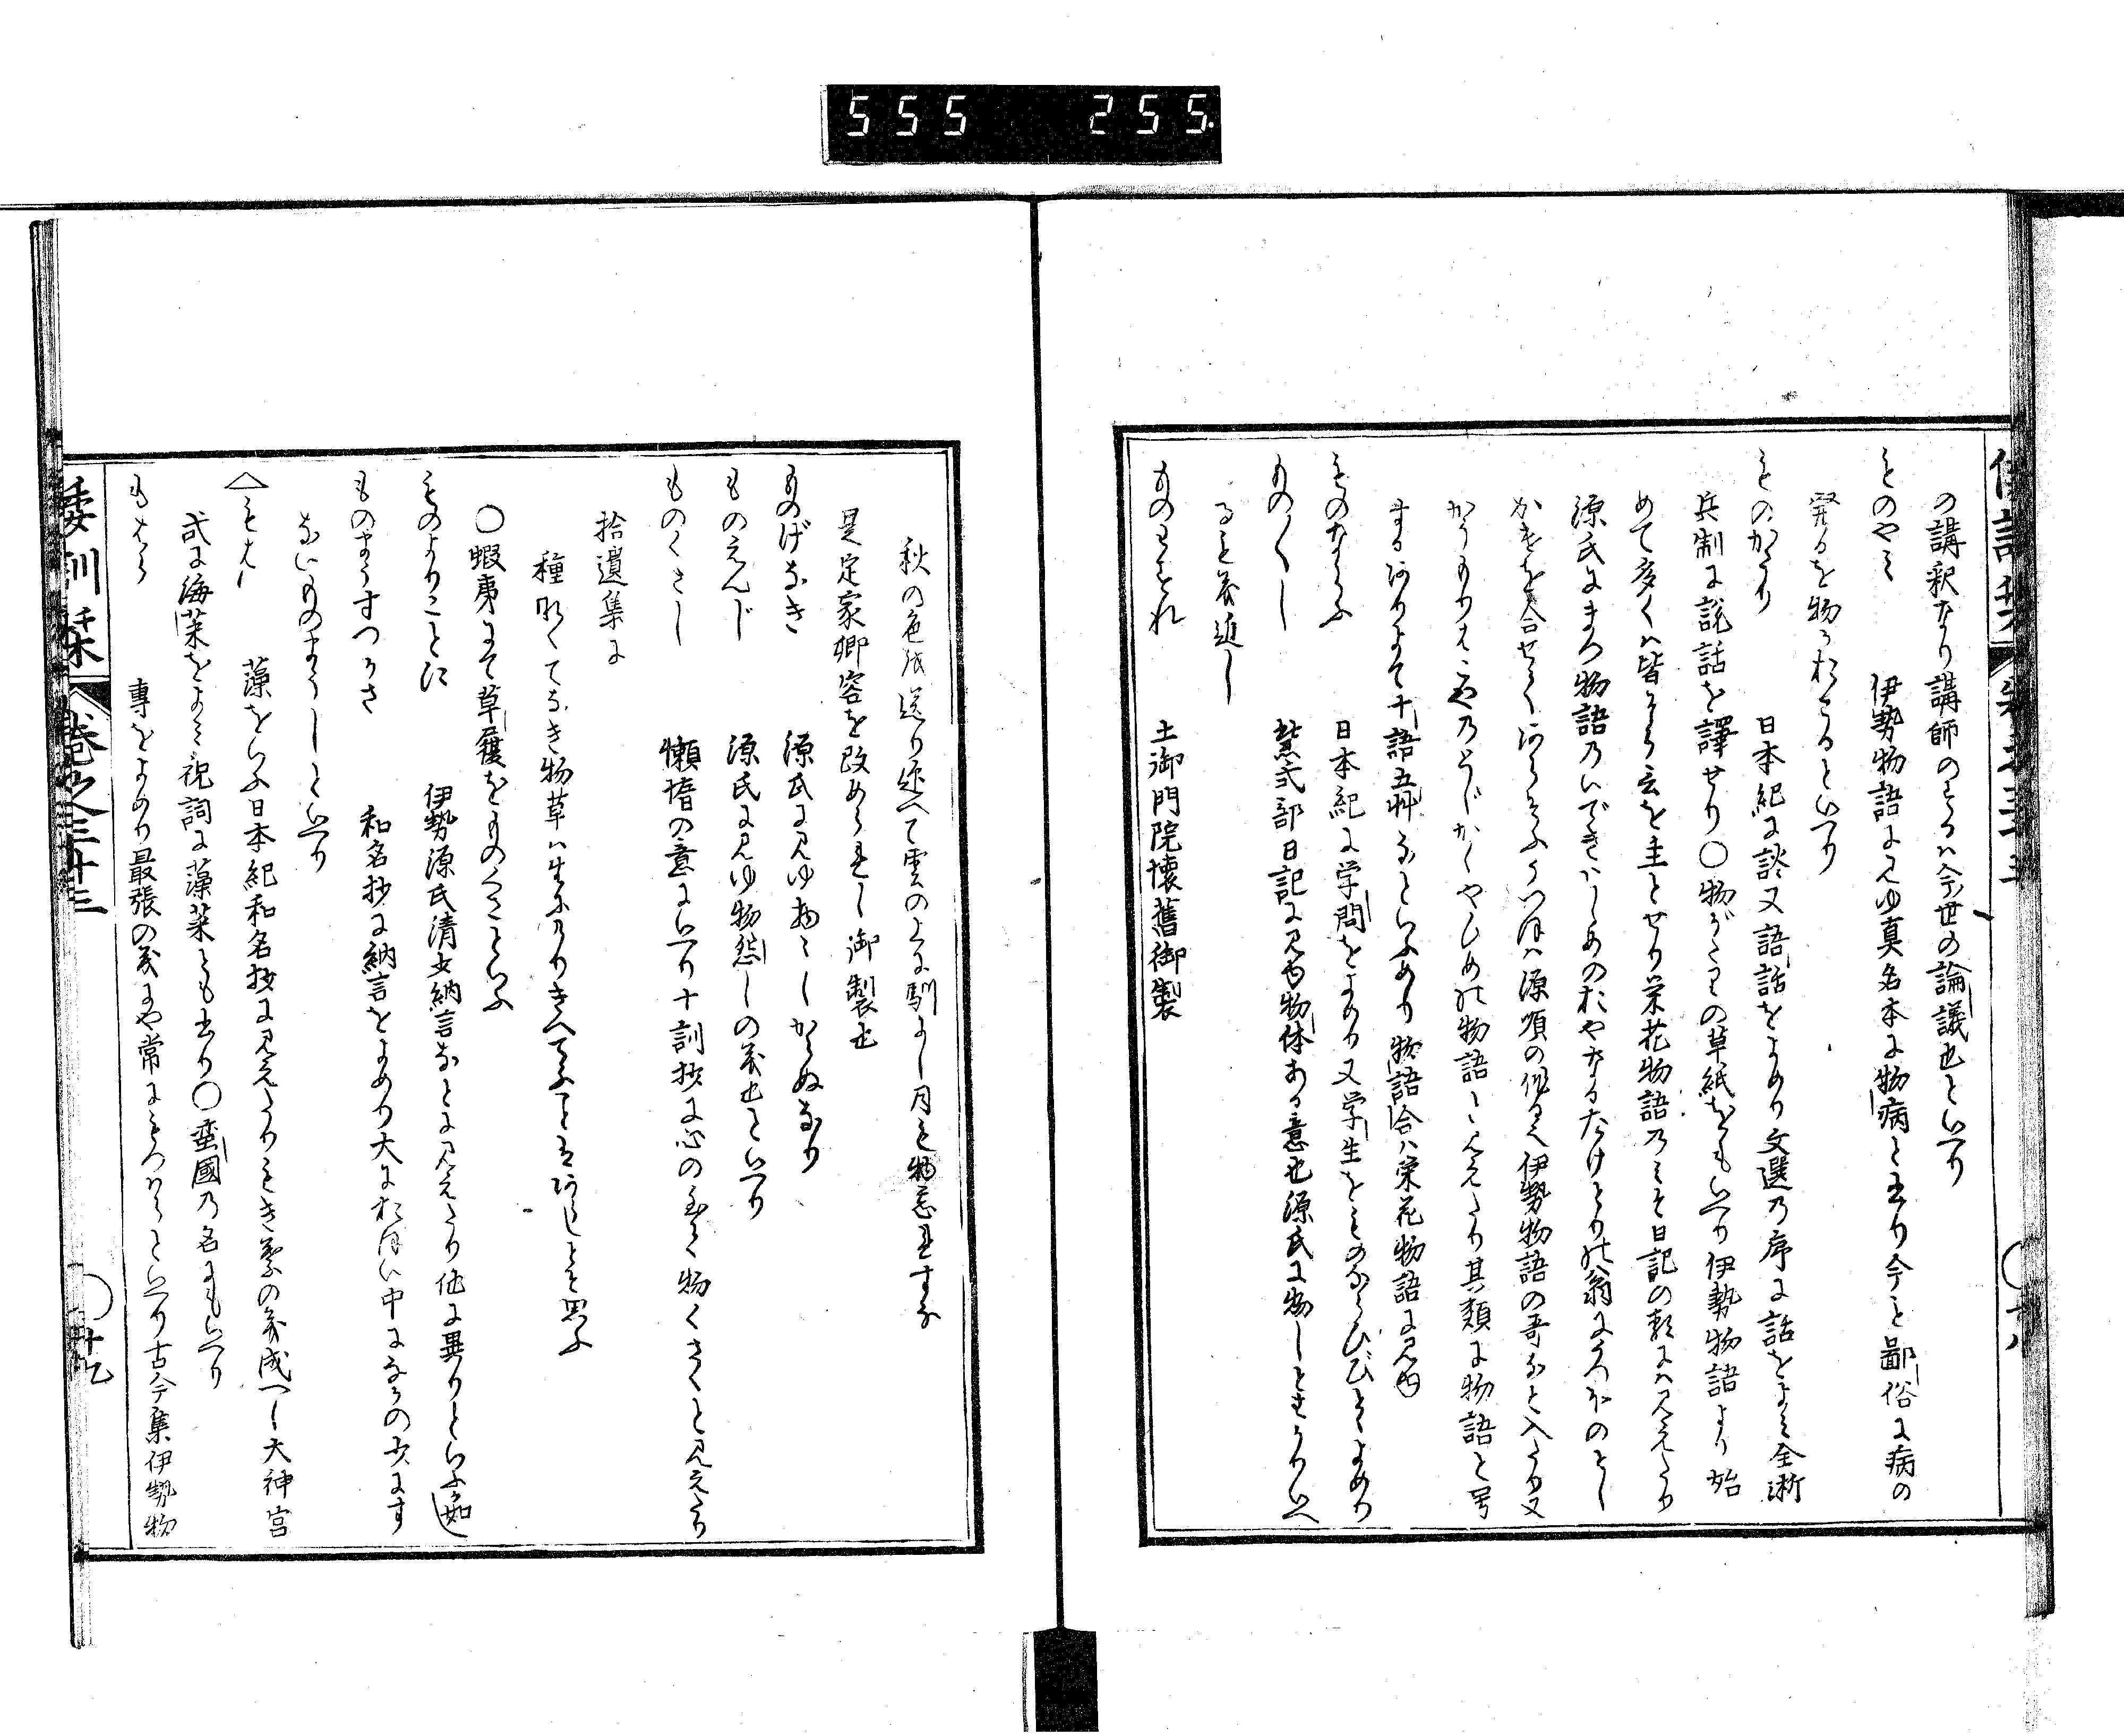 555 255.
の講釈なり講師のよるハ今世の論議也といへり
ものやミ 伊勢物語に見ゆ真名本に物病と書り今も鄙俗に病の
発るを物のおこるといへり
ものがたり 日本紀に談又語話をよめり文選の序に話をよミ全浙
兵制に説話を譯せり○物がたりの草紙をもいへり伊勢物語より始
めて多くハ皆そら言を主とせり栄花物語のミそ日記の類にハ見えたり
源氏にまつ物語のいできはしめのおやなるたけとりの翁にうつほのとし
かけを合せてあらそふうつほハ源順の作る人伊勢物語の哥なと入たり又
物語と見えたり其類に物語と号
するありよて十語五艸なといふあり物語合ハ栄花物語に見ゆ
ものならふ 日本紀に学問をよめり又学生をものならひびとゝよめり
ものくし 紫式部日記に見ゆ物体ある意也源氏に物しともいへ
るも義近し
ものわすれ 土御門院懐舊御製
秋の色を送り迎へて雲のよに馴にし月も物忘れすな
是定家卿容を改められし御製也
ものげなき 源氏に見ゆ物ミしからぬなり
ものえんじ 源氏に見ゆ物怨しの義也といへり
ものくさし 懶惰の意にいへり十訓抄に心の至て物くさくと見えたり
拾遺集に
種なくてなき物草ハ生にけりまくてふことはあらしとそ思ふ
○蝦夷にて草履をものくさといふ
ものよりことに 伊勢源氏清少納言なとに見えたり他に異りといふか如し
ものまうすつかさ 和名抄に納言をよめり大におほい中になかの少にす
ないものまうしといへり
△も は 藻をいふ日本紀和名抄に見えたりもき葉の義成へし大神宮
式に海菜をよミ祝詞に藻菜とも書り○蛮國の名にもいへり
もはら 専をよめり最張の義にや常にもつはらといへり古今集伊勢物
倭訓栞 巻之三十三 ○十九